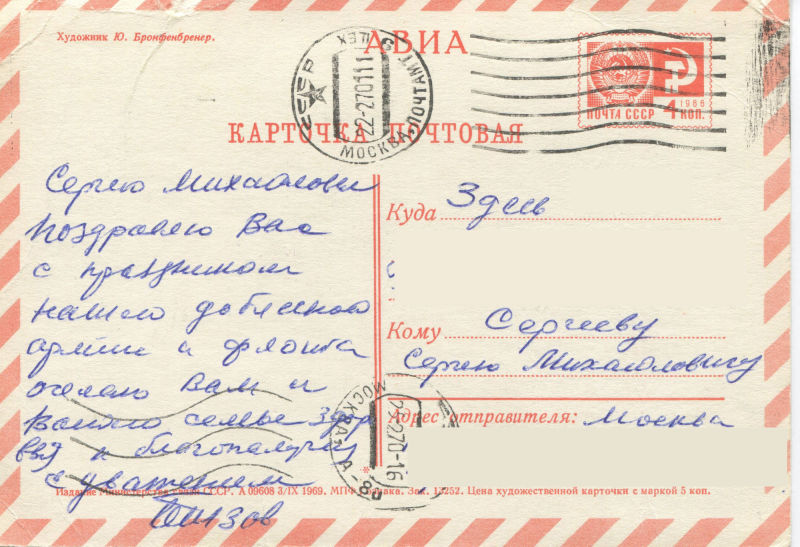 Художник Ю. Бронфенбренер.
АВИА
КАРТОЧКА ПОЧТОВАЯ
СССР
МОСКВА-ПОЧТАМТ
22-270111
1966
ПОЧТА СССР
4 коп.
Сергею Михайлович
Поздравляю Вас
с праздником
нашей доблесной
армии и флота
желаю Вам и
вашей семье здор
вья и благополучия
с уважением
Куда Здесь
Кому Сергееву
Сергею Михайловичу
Адрес отправителя: Москва
МОСКВА
Издание Министерства связи СССР. А 09608 3/IX 1969. МПФ Гознака. Зак. 13252. Цена художественной карточки с маркой 5 коп.